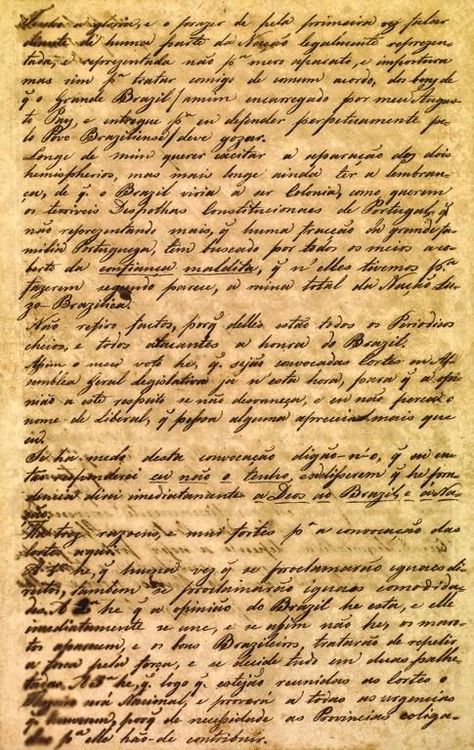 Tenho a gloria, e o prazer de pela primeira vez fallar
diante de huma parte da Nação legalmente reprezen-
tada, e reprezentada não pª mero aparato, e impostura
mas sim pª tratar comigo de comum acordo, dos bens de
q̃ o Grande Brazil / amim encarregado por meu Augus-
to Pay, e entregue pª eu defender perpetuamente pe-
lo Povo Braziliense / deve gozar.
Longe de mim querer excitar a separação dos dois
hemispherios, mas mais longe ainda ter a lembran-
ça, de q̃ o Brazil viria á ser Colonia, como querem
os terriveis Despothas Constitucionaes de Portugal, q̃
não reprezentando mais, q̃ huma fracção da grande fa-
milia Portugueza, tem buscado por todos os meios a co-
berto da confiança maldita, q̃ n'elles tivemos pª
fazerem segundo parece, a ruina total da Nação Lu-
zo-Brazilica.
Não refiro factos, porq̃ delles estão todos os Periodicos
cheios, e todos atacantes a honra do Brazil.
Assim o meu voto he, q̃ sejão convocadas Cortes ou As
semblea Geral Legislativa já n'esta hora, para q̃ a opi-
nião a este respeito se não desvaneça, e eu não perca o
nome de Liberal, q̃ pessoa alguma apreciará mais que
eu.
Se ha medo desta convocação digão-n-o, q̃ eu en-
tão responderei eu não o tenho, e se disserem q̃ he pru-
dencia direi imediatamente a Deos ao Brazil, e a Na-
ção.
Ha trez razoens, e mui fortes pª a convocação das
Cortes agora.
A 1ª he, q̃ huma vez q̃ se proclamarão iguaes di-
reitos, tambem se proclamarão iguaes comodida-
des. A 2ª he q̃ a opinião do Brazil he esta, e elle
imediatamente se une, e se assim não he, os maro-
tos aparecem, e os bons Brazileiros, tratarão de repelir
a força pela força, e se decide tudo em duas palhe-
tadas. A 3ª he, q̃ logo q̃ estejão reunidas as Cortes o
será Nacional, e proverá a todas as urgencias
q̃ houverem, porq̃ de necessidade as Provincias coliga-
das pª elle hão-de contribuir.